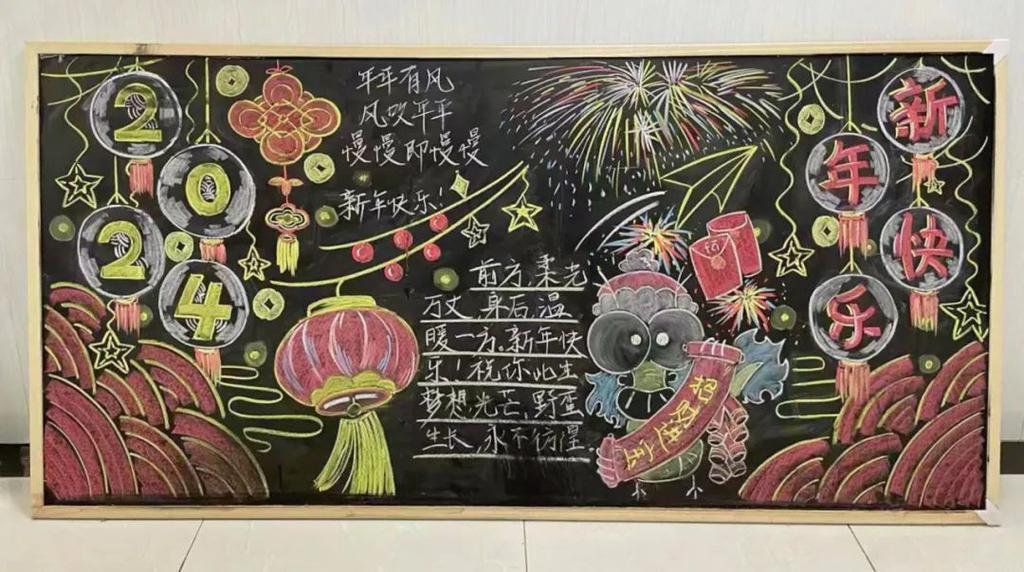 2
0
2
4
年年有风
风吹年年
慢慢即慢慢
新年快乐!
前方柔光
万丈,身后温
暖一方.新年快
乐!祝你此生
梦想光芒,野蛮
生长,永不彷徨.
新
年
快
乐